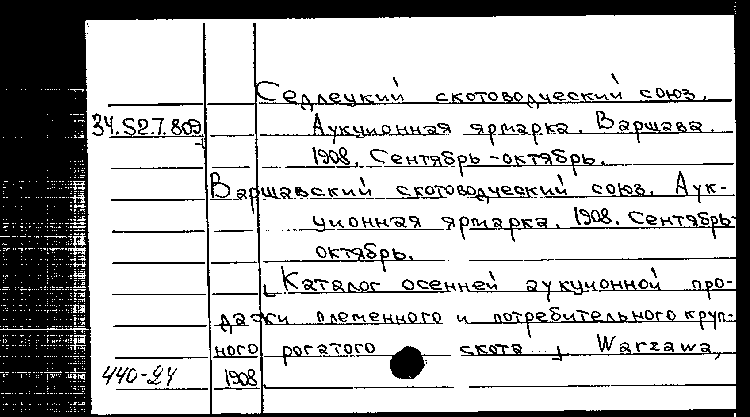 Седлецкий скотоводческий союз.
34.52.7.809 Аукционная ярмарка. Варшава.
1908. Сентябрь-октябрь.
Варшавский скотоводческий союз. Аук-
ционная ярмарка. 1908. Сентябрь-
октябрь.
Каталог осенней аукционной про-
дажи племенного и потребительного круп-
ного рогатого скота, Warzawa,
440-24 1908